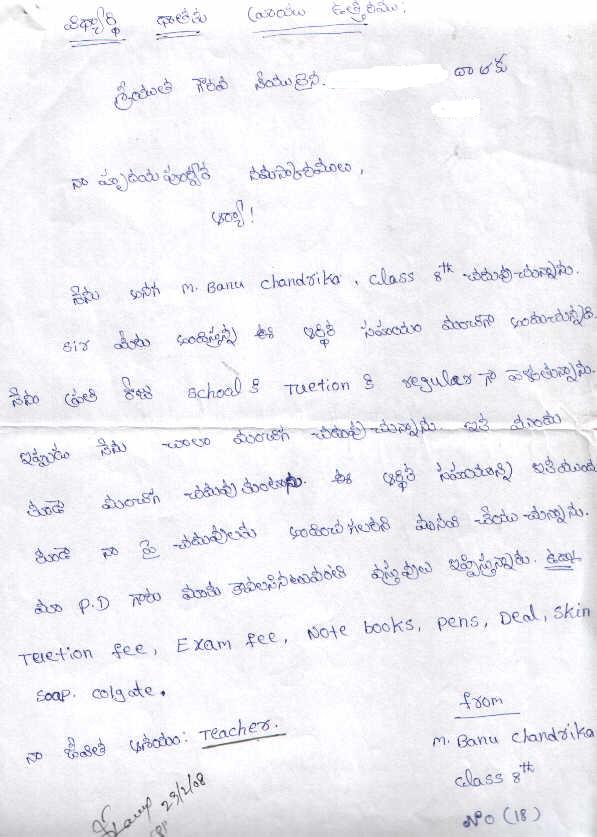 విద్యార్థి దాతకు వ్రాయు ఉత్తరము:
శ్రీయుత గౌరవ నీయులైన. దాతకు
నా హృదయపూర్వక నమస్కారములు,
ఆర్యా!
నేను అనగా M. Banu Chandrika, Class 8th చదువుచున్నాను.
Sir మీరు అందిస్తున్న ఈ ఆర్థిక సహాయం మంచిగా అందుచున్నది.
నేను ప్రతి రోజు School కి Tuetion కి regular గా వెళుతున్నాను.
ఇప్పుడు నేను చాలా మంచిగా చదువుచున్నాను. ఇక ముందు
కూడా మంచిగా చదువుకుంటాను. ఈ ఆర్థిక సహాయాన్ని ఇకముందు
కూడా నా పై చదువులకు అందించగలరని మనవి చేయుచున్నాను.
మా P.D గారు మాకు కావలసినటువంటి వస్తువులు ఇప్పిస్తున్నారు. ఉదా॥
Tuetion fee, Exam fee, Note books, pens, Deal, Skin
Soap. Colgate.
నా జీవిత ఆశయం: Teacher.
from
M. Banu Chandrika
Class 8th
No (18)
23/2/08